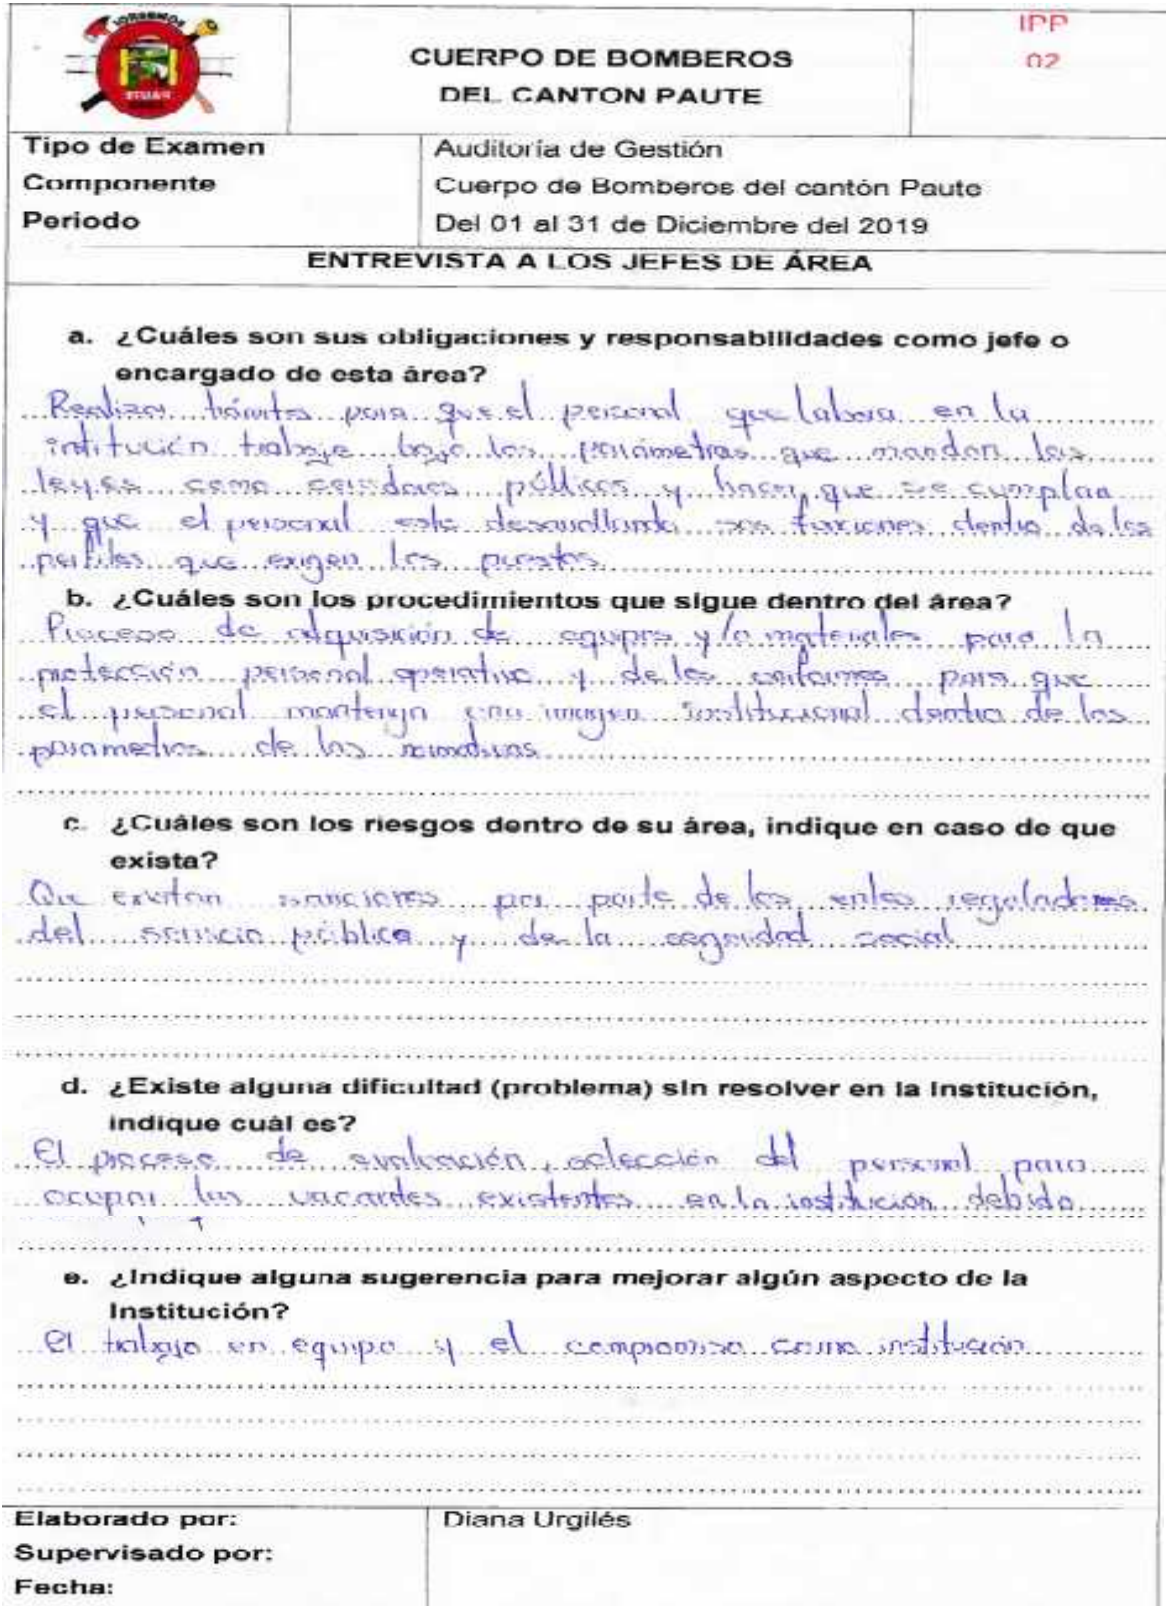 BOMBEROS
PAUTE
CUERPO DE BOMBEROS
DEL CANTON PAUTE
IPP
02
Tipo de Examen
Auditoría de Gestión
Componente
Cuerpo de Bomberos del cantón Paute
Periodo
Del 01 al 31 de Diciembre del 2019
ENTREVISTA A LOS JEFES DE ÁREA
a. ¿Cuáles son sus obligaciones y responsabilidades como jefe o
encargado de esta área?
Realizar trámites para que el personal que labora en la
intitución trabaje bajo los parámetros que mandan las
leyes como servidores públicos y hacer que se cumplan
y que el personal este desarrollando sus funciones dentro de los
perfiles que exigen los puestos
b. ¿Cuáles son los procedimientos que sigue dentro del área?
Proceso de adquisición de equipos y/o materiales para la
protección personal operativo y de los uniformes para que
el personal mantenga una imagen institucional dentro de los
parametros de las normativas
c. ¿Cuáles son los riesgos dentro de su área, indique en caso de que
exista?
Que existan sanciones por parte de los entes reguladores
del servicio público y de la seguridad social
d. ¿Existe alguna dificultad (problema) sin resolver en la Institución,
indique cuál es?
El proceso de evaluación, selección del personal para
ocupar las vacantes existentes en la institución debido
e. ¿Indique alguna sugerencia para mejorar algún aspecto de la
Institución?
El trabajo en equipo y el compromiso como institución
Elaborado por:
Diana Urgilés
Supervisado por:
Fecha: